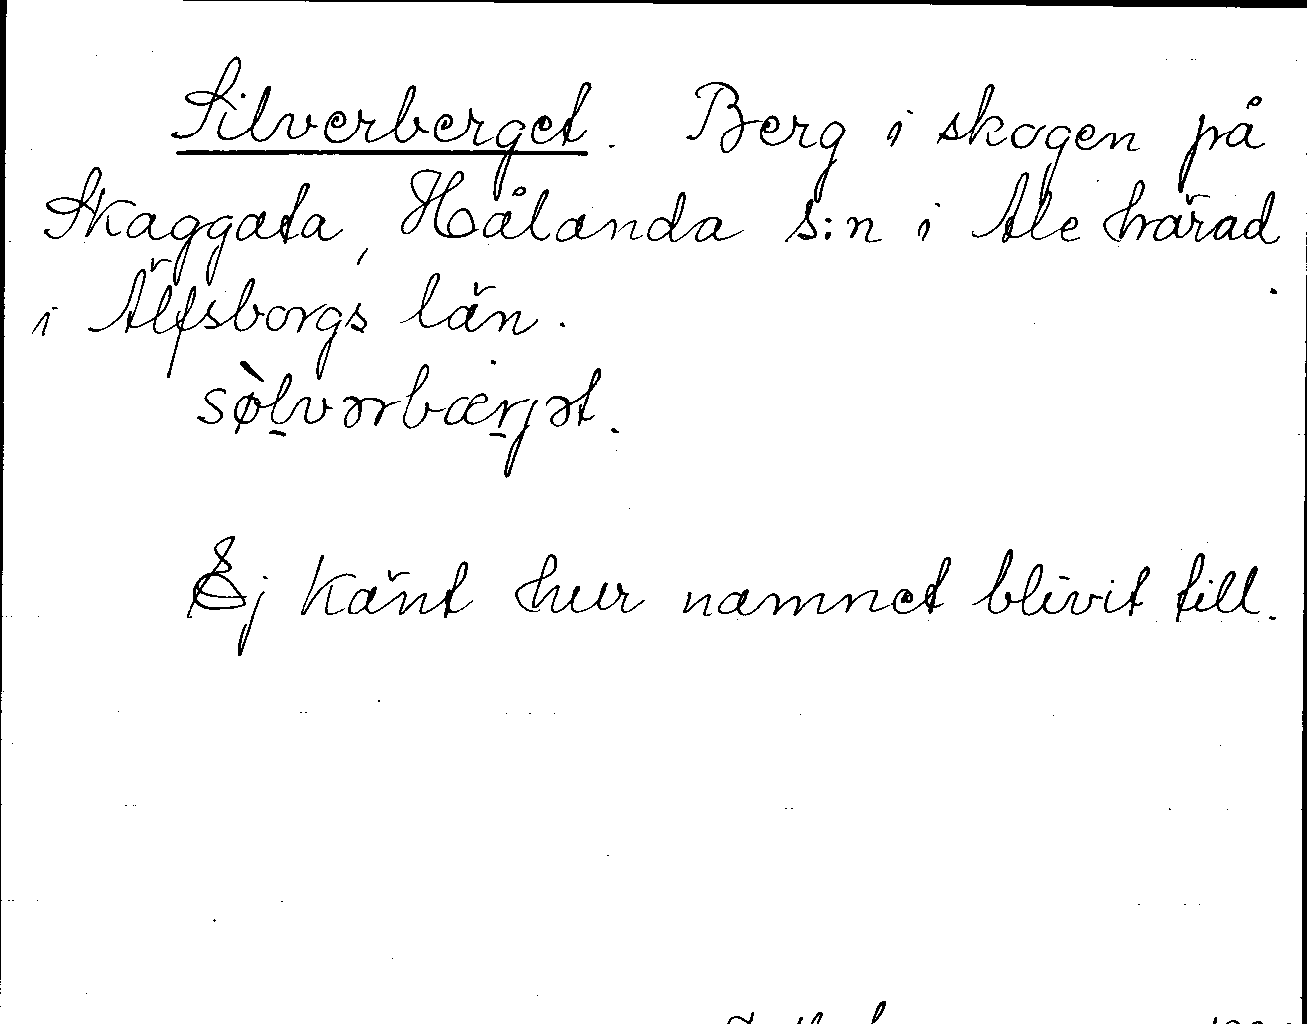 Silverberget. Berg i skogen på
Skaggata, Hålanda s:n i Ale härad
i Älfsborgs län.
sø̀lvərbærjət.
Ej känt hur namnet blivit till.